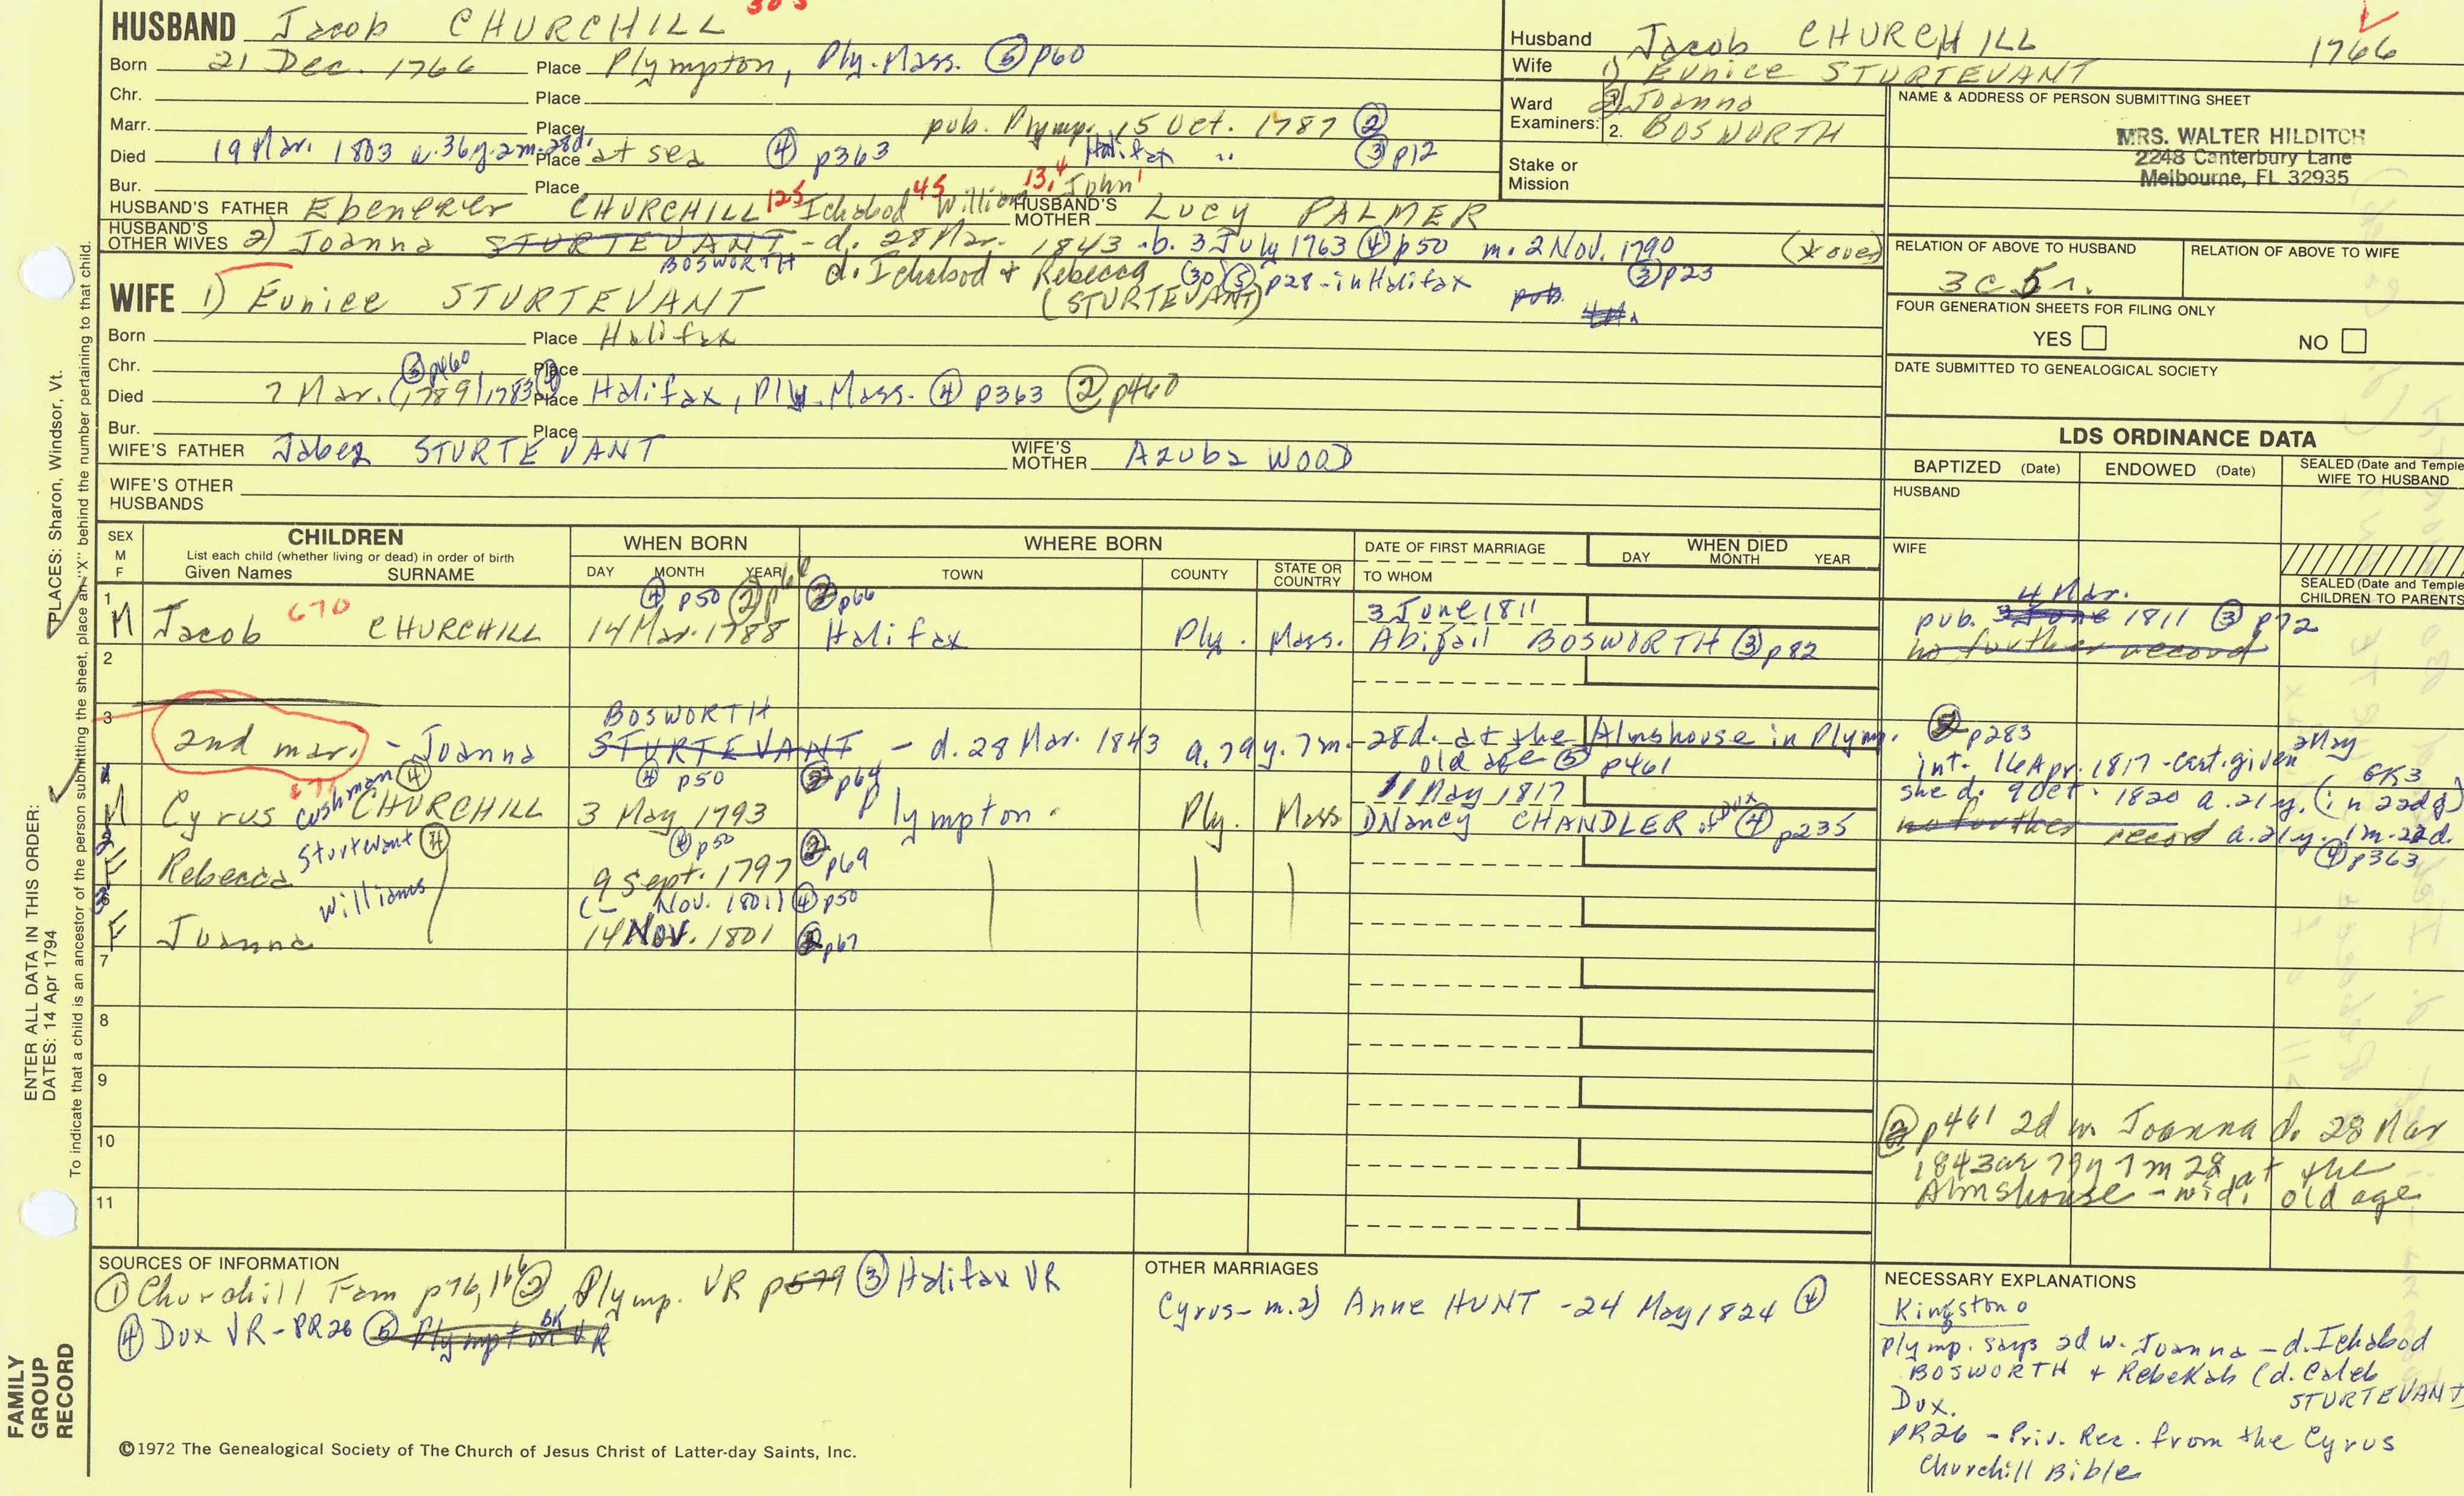 HUSBAND Jacob CHURCHILL 305
Born 21 Dec. 1766 Place Plympton, Ply. Mass. (5) p60
Chr. Place
Marr. Place pub. Plymp. 15 Oct. 1787 (2)
Died 19 Mar. 1803 a. 36y. 2m. 28d. Place at sea (4) p363 Halifax " (3) p12
Bur. Place
HUSBAND'S FATHER Ebenezer CHURCHILL 125 Ichabod 45 William 13,4 John 1 HUSBAND'S MOTHER Lucy PALMER
HUSBAND'S OTHER WIVES 2) Joanna STURTEVANT - d. 28 Mar. 1843 - b. 3 July 1763 (4) p50 m. 2 Nov. 1790 (x over)
BOSWORTH d. Ichabod + Rebecca (30) (5) p28 - in Halifax (3) p23
(STURTEVANT) pub.
WIFE 1) Eunice STURTEVANT
Born Place Halifax
Chr. (3) p460 Place
Died 7 Mar. (1789) 1783 (4) Place Halifax, Ply. Mass. (4) p363 (2) p460
Bur. Place
WIFE'S FATHER Jabez STURTEVANT WIFE'S MOTHER Azuba WOOD
WIFE'S OTHER HUSBANDS
Husband Jacob CHURCHILL 1766
Wife 1) Eunice STURTEVANT
Ward 2) Joanna
Examiners: 2. BOSWORTH
Stake or Mission
NAME & ADDRESS OF PERSON SUBMITTING SHEET
MRS. WALTER HILDITCH
2248 Canterbury Lane
Melbourne, FL 32935
RELATION OF ABOVE TO HUSBAND RELATION OF ABOVE TO WIFE
3c 5r.
FOUR GENERATION SHEETS FOR FILING ONLY
YES NO
DATE SUBMITTED TO GENEALOGICAL SOCIETY
LDS ORDINANCE DATA
BAPTIZED (Date) ENDOWED (Date) SEALED (Date and Temple) WIFE TO HUSBAND
HUSBAND
WIFE
SEALED (Date and Temple) CHILDREN TO PARENTS
SEX M F
CHILDREN
List each child (whether living or dead) in order of birth
Given Names SURNAME
WHEN BORN
DAY MONTH YEAR
WHERE BORN
TOWN COUNTY STATE OR COUNTRY
DATE OF FIRST MARRIAGE
TO WHOM
WHEN DIED
DAY MONTH YEAR
1 (4) p50 (2) p66 (3) p66 3 June 1811 4 Mar.
M Jacob 670 CHURCHILL 14 Mar. 1788 Halifax Ply. Mass. Abigail BOSWORTH (3) p82 pub. 3 June 1811 (3) p72
no further record
2
3 BOSWORTH
2nd mar. - Joanna STURTEVANT - d. 28 Mar. 1843 a. 79y. 7m. 28d. at the Almshouse in Plymp. (2) p283
old age (5) p461 int. 16 Apr. 1817 - cert. given 2 May
4 671 Cushman (4) (4) p50 (2) p64 11 May 1817 she d. 9 Oct. 1820 a. 21y. (in 22d) GR3
M Cyrus CHURCHILL 3 May 1793 Plympton Ply. Mass DNancy CHANDLER of Dux (4) p235 no further record a. 21y. 1m. 22d. (4) p363
2 Sturtevant (4) (4) p50 (2) p69
F Rebecca 9 Sept. 1797
3 Williams (- Nov. 1801) (4) p50
F Joanna 14 Nov. 1801 (2) p67
7
8
9
10
11
(2) p461 2d w. Joanna d. 28 Mar
1843 ae 79y 7m 28 at the
Almshouse - wid. old age
SOURCES OF INFORMATION
(1) Churchill Fam p76, 166 (2) Plymp. VR p579 (3) Halifax VR
(4) Dux VR - PR26 (5) Plympton VR BK
OTHER MARRIAGES
Cyrus - m. 2) Anne HUNT - 24 May 1824 (4)
NECESSARY EXPLANATIONS
Kingston
Plymp. says 2d w. Joanna - d. Ichabod
BOSWORTH + Rebekah (d. Caleb
STURTEVANT)
Dux.
PR26 - Priv. Rec. from the Cyrus
Churchill Bible
©1972 The Genealogical Society of The Church of Jesus Christ of Latter-day Saints, Inc.
FAMILY GROUP RECORD
ENTER ALL DATA IN THIS ORDER:
DATES: 14 Apr 1794
PLACES: Sharon, Windsor, Vt.
To indicate that a child is an ancestor of the person submitting the sheet, place an "X" behind the number pertaining to that child.